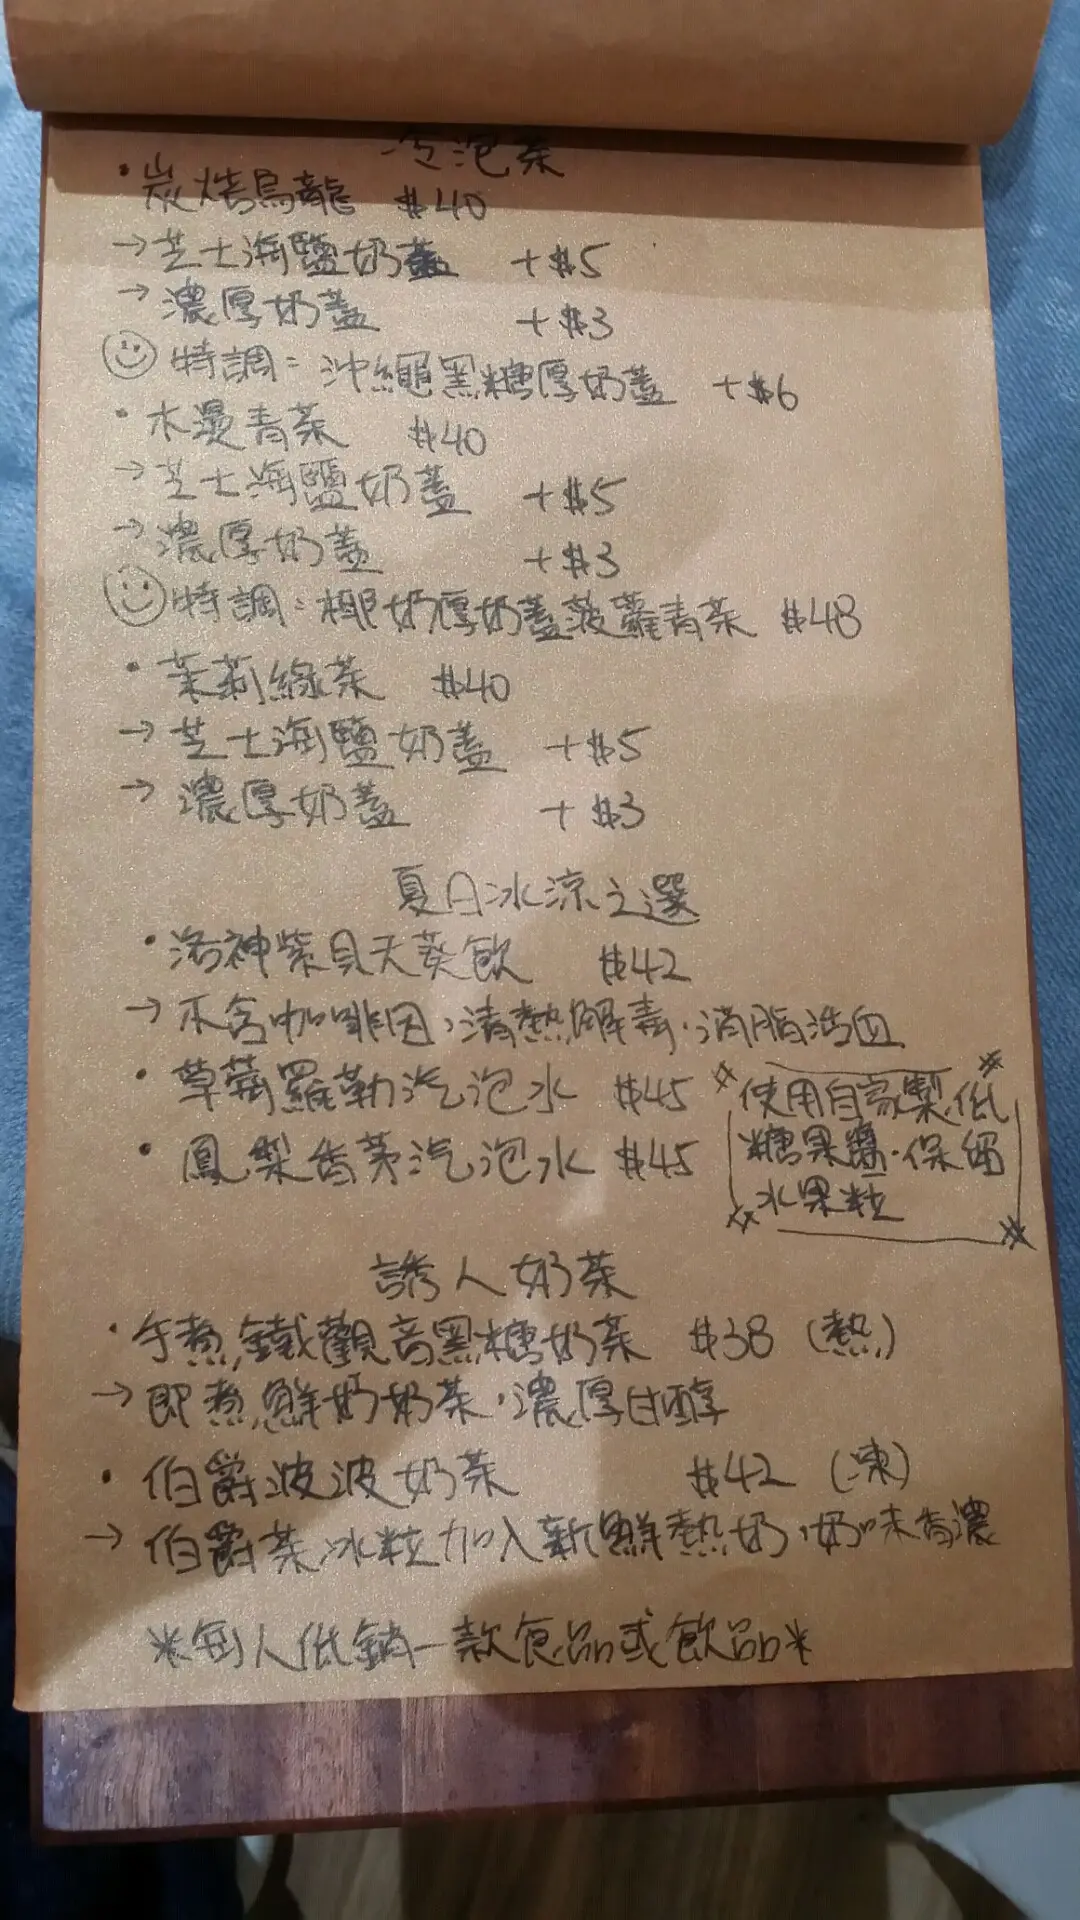 冷泡茶
・炭焙烏龍 $40
→芝士海鹽奶蓋 +$5
→濃厚奶蓋 +$3
特調：沖繩黑糖厚奶蓋 +$6
・水漫青茶 $40
→芝士海鹽奶蓋 +$5
→濃厚奶蓋 +$3
特調：椰奶厚奶蓋菠蘿青茶 $48
・茉莉綠茶 $40
→芝士海鹽奶蓋 +$5
→濃厚奶蓋 +$3
夏日冰涼之選
・洛神紫貝天葵飲 $42
→不含咖啡因，清熱解毒，消脂活血
・草莓羅勒汽泡水 $45
・鳳梨香茅汽泡水 $45
使用自家製低
糖果醬，保留
水果粒
誘人奶茶
・手煮鐵觀音黑糖奶茶 $38 (熱)
→即煮鮮奶奶茶，濃厚甘醇
・伯爵波波奶茶 $42 (凍)
→伯爵茶冰粒加入新鮮熱奶，奶味香濃
*每人低銷一款食品或飲品*